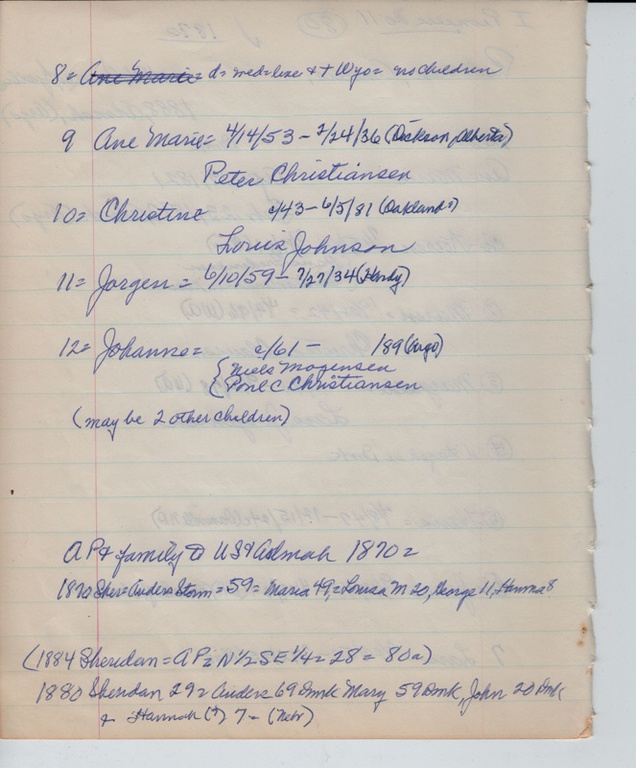 8 = Ane Marie = d = med = live & + Wyo = no children
9 Ane Marie = 4/14/53 - 2/24/36 (Dickson, Alberta)
Peter Christiansen
10 = Christine c/43 - 6/5/81 (Oakland?)
Louis Johnson
11 = Jorgen = 6/10/59 - 7/27/34 (Hardy)
12 = Johanne = c/61 - 1/89 (Argo)
{ Niels Mogensen
{ Poul C Christiansen
(may be 2 other children)
AP & family to US & Admah 1870 =
1870 Sher = Anders Storm = 59 = Maria 49, = Louisa M 20, George 11, Hanna 8
(1884 Sheridan = AP = N 1/2 SE 1/4 = 28 = 80a)
1880 Sheridan 29 = Anders 69 Dmk Mary 59 Dmk, John 20 Dmk
& Hannah (?) 7 - (Nebr)